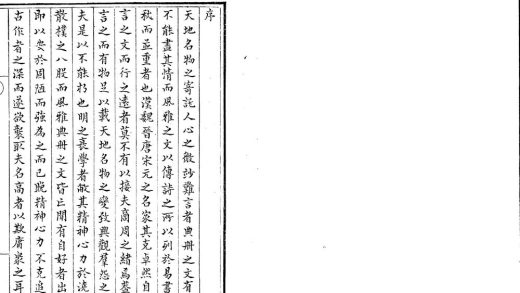 序
天地名物之寄託人心之微妙難言者典冊之文有
不能盡其情而風雅之文以傳詩之所以列於易書
秋而並重者也漢魏晉唐宋元之名家其克卓然自
言之文而行之遠者莫不有以接夫商周之緒焉蓋
言之而有物足以載天地名物之變致興觀羣怨之
夫是以不能朽也明之衰學者敝其精神心力於流
散樸之八股而風雅典冊之文皆亡閒有自好者出
即以安於固陋而強為之而已脫精神心力不克追
古作者之深而遂欲襲取夫名高者以欺庸衆之耳